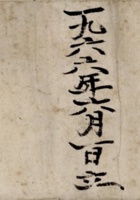 一九六六年六月一日立